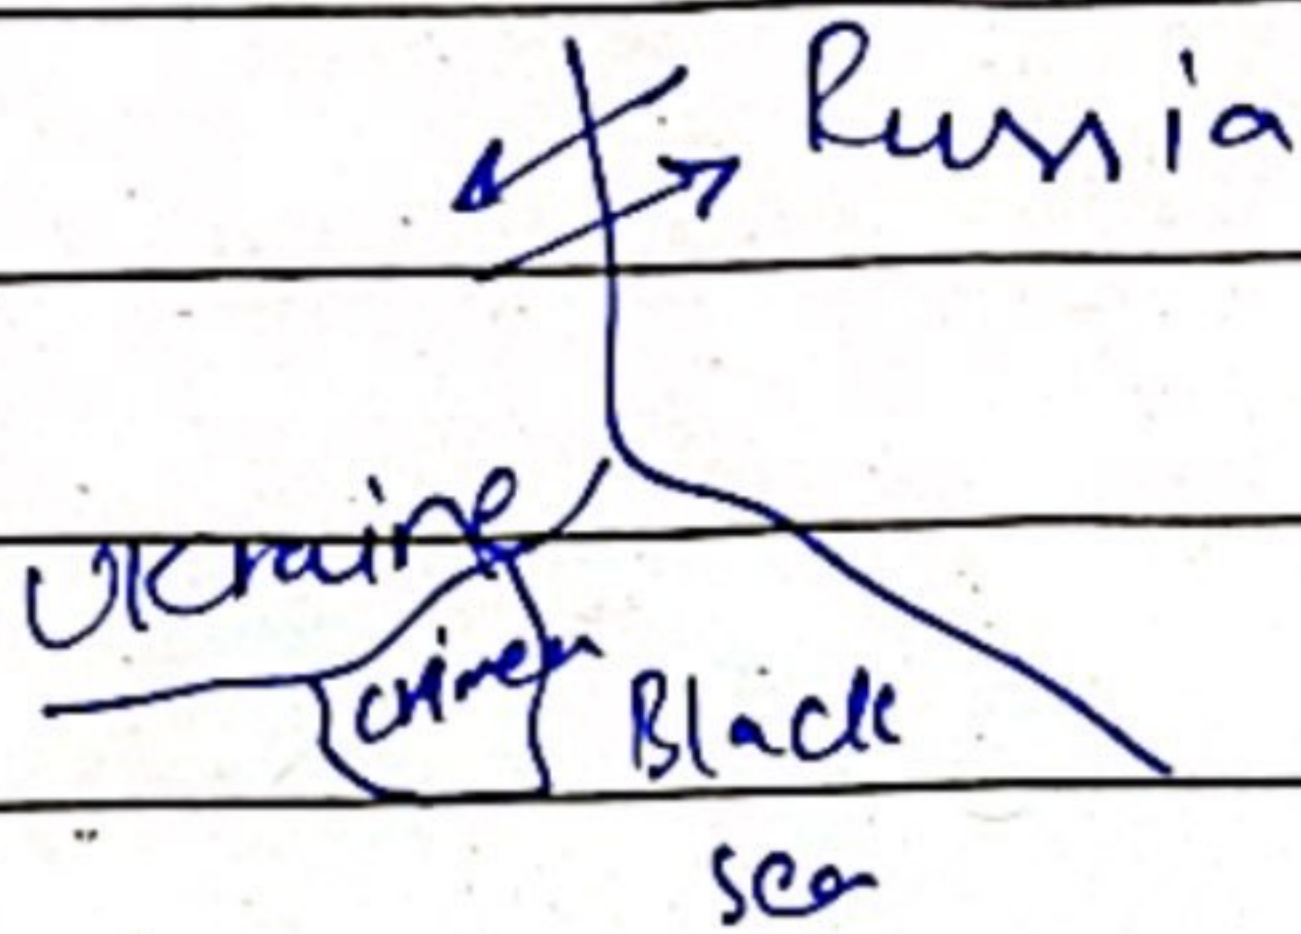 Russia
Ukraine
crimea
Black
sea